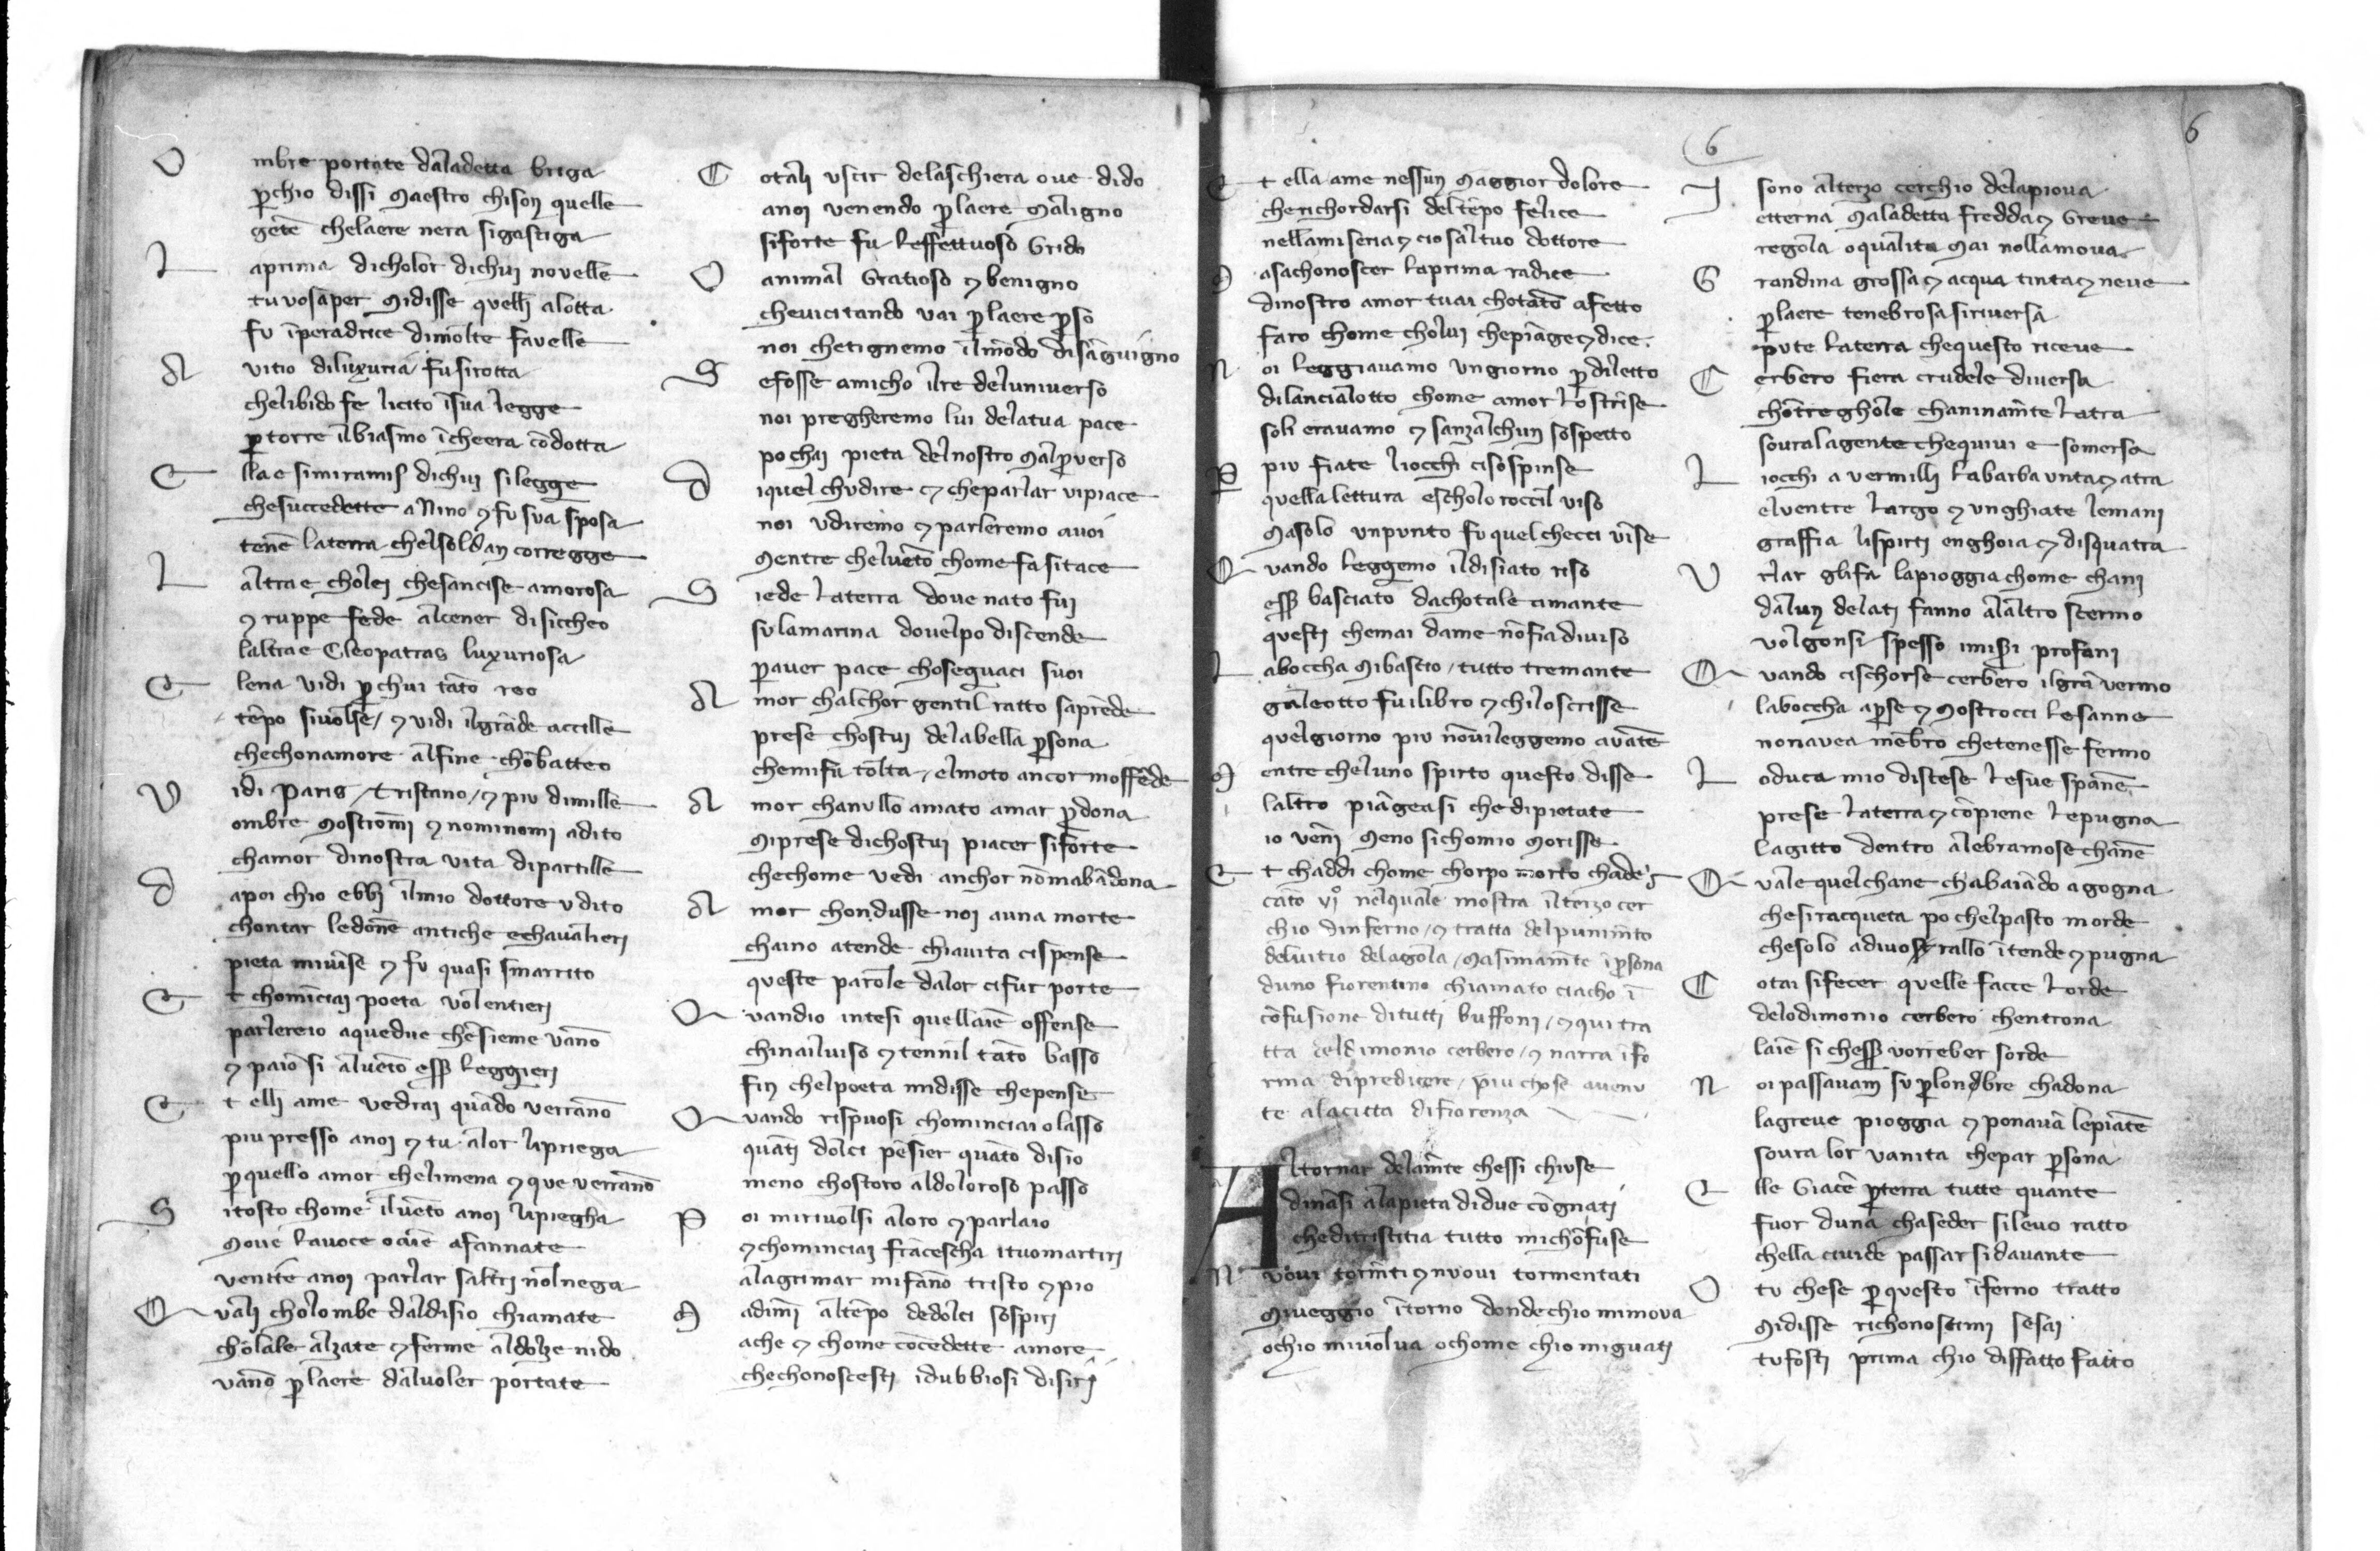 O mbre portate daladetta briga
ꝑchio dissi Maestro chison quelle
gētē chelaere nera sigastiga
L aprima dicholor dichuj novelle
tu vosaper Midisse quellj alotta
fu īperadrice dimolte favelle
A vitio diluxuria fusirotta
chelibido fe licito īsua legge
ꝑ torre ilbiasmo īcheera cōdotta
E llae simiramis dichuj silegge
chesuccedette a Nino ⁊ fu sua sposa
tenē laterra chelsoldan corregge
L altrae cholej chesancise amorosa
⁊ ruppe fede alcener disiccheo
laltrae Cleopatras luxuriosa
E lena vidi ꝑchui tāto reo
tēpo sivolse / ⁊ vidi ilgrāde accille
chechonamore alfine chōbatteo
V idi Paris / tristano / ⁊ piu dimille
ombre Mostrōmi ⁊ nominomi adito
chamor dinostra vita dipartille
D apoi chio ebbj ilmio dottore vdito
chontar ledonē antiche echavalierj
pieta mivīse ⁊ fu quasi smarrito
E t chomīciaj poeta volentierj
parlereio aquedue chēsieme vāno
⁊ paiō si alvēto eſſꝫ leggierj
E t ellj ame vedraj quādo verrāno
piu presso anoj ⁊ tu alor lipriega
ꝑ quello amor chelimena ⁊ que verrāno
S itosto chome ilvēto anoj lipiegha
Move lavoce o aīē afannate
venite anoj parlar saltrj nōlnega
Q valj cholombe daldisio chiamate
chōlale alzate ⁊ ferme aldolze nido
vāno ꝑ laere dalvoler portate
C otalj vscir delaschiera ove dido
anoj venendo ꝑ laere Maligno
siforte fu leffettuoso Grido
O animal Gratioso ⁊ benigno
chevicitando vai ꝑ laere ꝑso
noi chetignemo ilmōdo disāguigno
S efosse amicho ilre deluniverso
noi pregheremo lui delatua pace
po chaj pieta delnostro Malꝑverso
D iquel chudire ⁊ cheparlar vipiace
noi vdiremo ⁊ parleremo avoi
Mentre chelvēto chome fa sitace
S iede laterra dove nato fuj
sulamarina dovelpo discende
ꝑ aver pace choseguaci suoi
A mor chalchor gentil ratto saprēde
prese chostuj delabella ꝑsona
chemifu tolta / elmoto ancor moffēde
A mor chanullo amato amar ꝑdona
Miprese dichostuj piacer siforte
chechome vedi anchor nōmabādona
A mor chondusse noi auna morte
chaino atende chiavita cispense
queste parole dalor cifur porte
Q vandio intesi quellaiē offense
chinailviso ⁊ tennil tāto basso
fin chelpoeta midisse chepense
Q vando rispuosi chominciaio lasso
quātj dolci pēsier quāto disio
meno chostoro aldoloroso passo
P oi mirivolsi aloro ⁊ parlaio
⁊ chominciaj frācescha ituomartirj
alagrimar mifāno tristo ⁊ pio
M adīmj altēpo dedolci sospirj
ache ⁊ chome cōcedette amore
chechonoscestj idubbiosi disirj
E t ella ame nessun Maggior dolore
cherichordarsi deltēpo felice
nellamiseria ⁊ cio saltuo dottore
M asachonoscer laprima radice
dinostro amor tuai chotāto afetto
faro chome choluj chepiāge ⁊ dice
N oi leggiavamo ungiorno ꝑ diletto
dilancialotto chome amor lostrīse
soli eravamo ⁊ sanzalchun sospetto
P piu fiate liocchi cisospinse
quella lettura escholoroccil viso
Masolo unpunto fu quel checci vīse
Q vando leggemo ildisiato riso
eſſꝫ basciato dachotale amante
questi chemai dame nōfia diviso
L aboccha Mibascio / tutto tremante
galeotto fu ilibro ⁊ chiloscrisse
quelgiorno piu nōvileggemo avātē
M entre cheluno spirto questo disse
laltro piāgeasi che dipietate
io vēnj Meno sichomio Morisse
E t chaddi chome chorpo morto chade
cāto vjº nelquale mostra ilterzo cer
chio dinferno / ⁊ tratta delpunimēto
delvitio delagola / Masimamēte ī ꝑsona
duno fiorentino chiamato ciacho ī
cōfusione ditutti buffonj / ⁊ qui tra
tta deldimonio cerbero / ⁊ narra ī fo
rma dipredicere / piu chose avenu
te alacitta difiorenza
A ltornar delamēte chessi chiuse
dināsi alapieta didue cōgnatj
cheditristitia tutto michōfuse
N uovi tormēti ⁊ nuovi tormentati
Miveggio ītorno dondechio mimova
ochio mivolva ochome chio miguatj
6
6
I sono alterzo cerchio delapiova
etterna Maladetta fredda ⁊ Greve
regola o qualita Mai nollamova
G randina grossa ⁊ acqua tinta ⁊ neve
ꝑ laere tenebrosa siriversa
pute laterra chequesto riceve
C erbero fiera crudele diversa
chōtreghole chaninamēte latra
sovralagente chequivi e somersa
L iocchi a vermillj labarba unta ⁊ atra
elventre largo ⁊ unghiate lemanj
graffia lispirtj enghoia ⁊ disquatra
V rlar glifa lapioggia chome chanj
dalun delatj fanno alaltro scermo
volgonsi spesso imiserj profanj
Q vando cischorse cerbero ilgrā vermo
laboccha aꝑse ⁊ Mostrocci lesanne
nonavea mēbro chetenesse fermo
L oduca mio distese lesue spānē
prese laterra ⁊ cōpiene lepugna
lagitto dentro alebramose chānē
Q vale quelchane chabaiādo agogna
chesiracqueta po chelpasto morde
chesolo adivorallo ītende ⁊ pugna
C otai sifecer quelle facce lorde
delodimonio cerbero chentrona
laiē si cheſſꝫ vorreber sorde
N oi passavam su ꝑ lonbre chadona
lagreve pioggia ⁊ ponavā lepiātē
sovra lor vanita chepar ꝑsona
E lle Giacē ꝑterra tutte quante
fuor duna chaseder silevo ratto
chella civide passarsi davante
O tu chese ꝑ questo īferno tratto
Midisse richonoscimi sesai
tufostj prima chio disfatto fatto